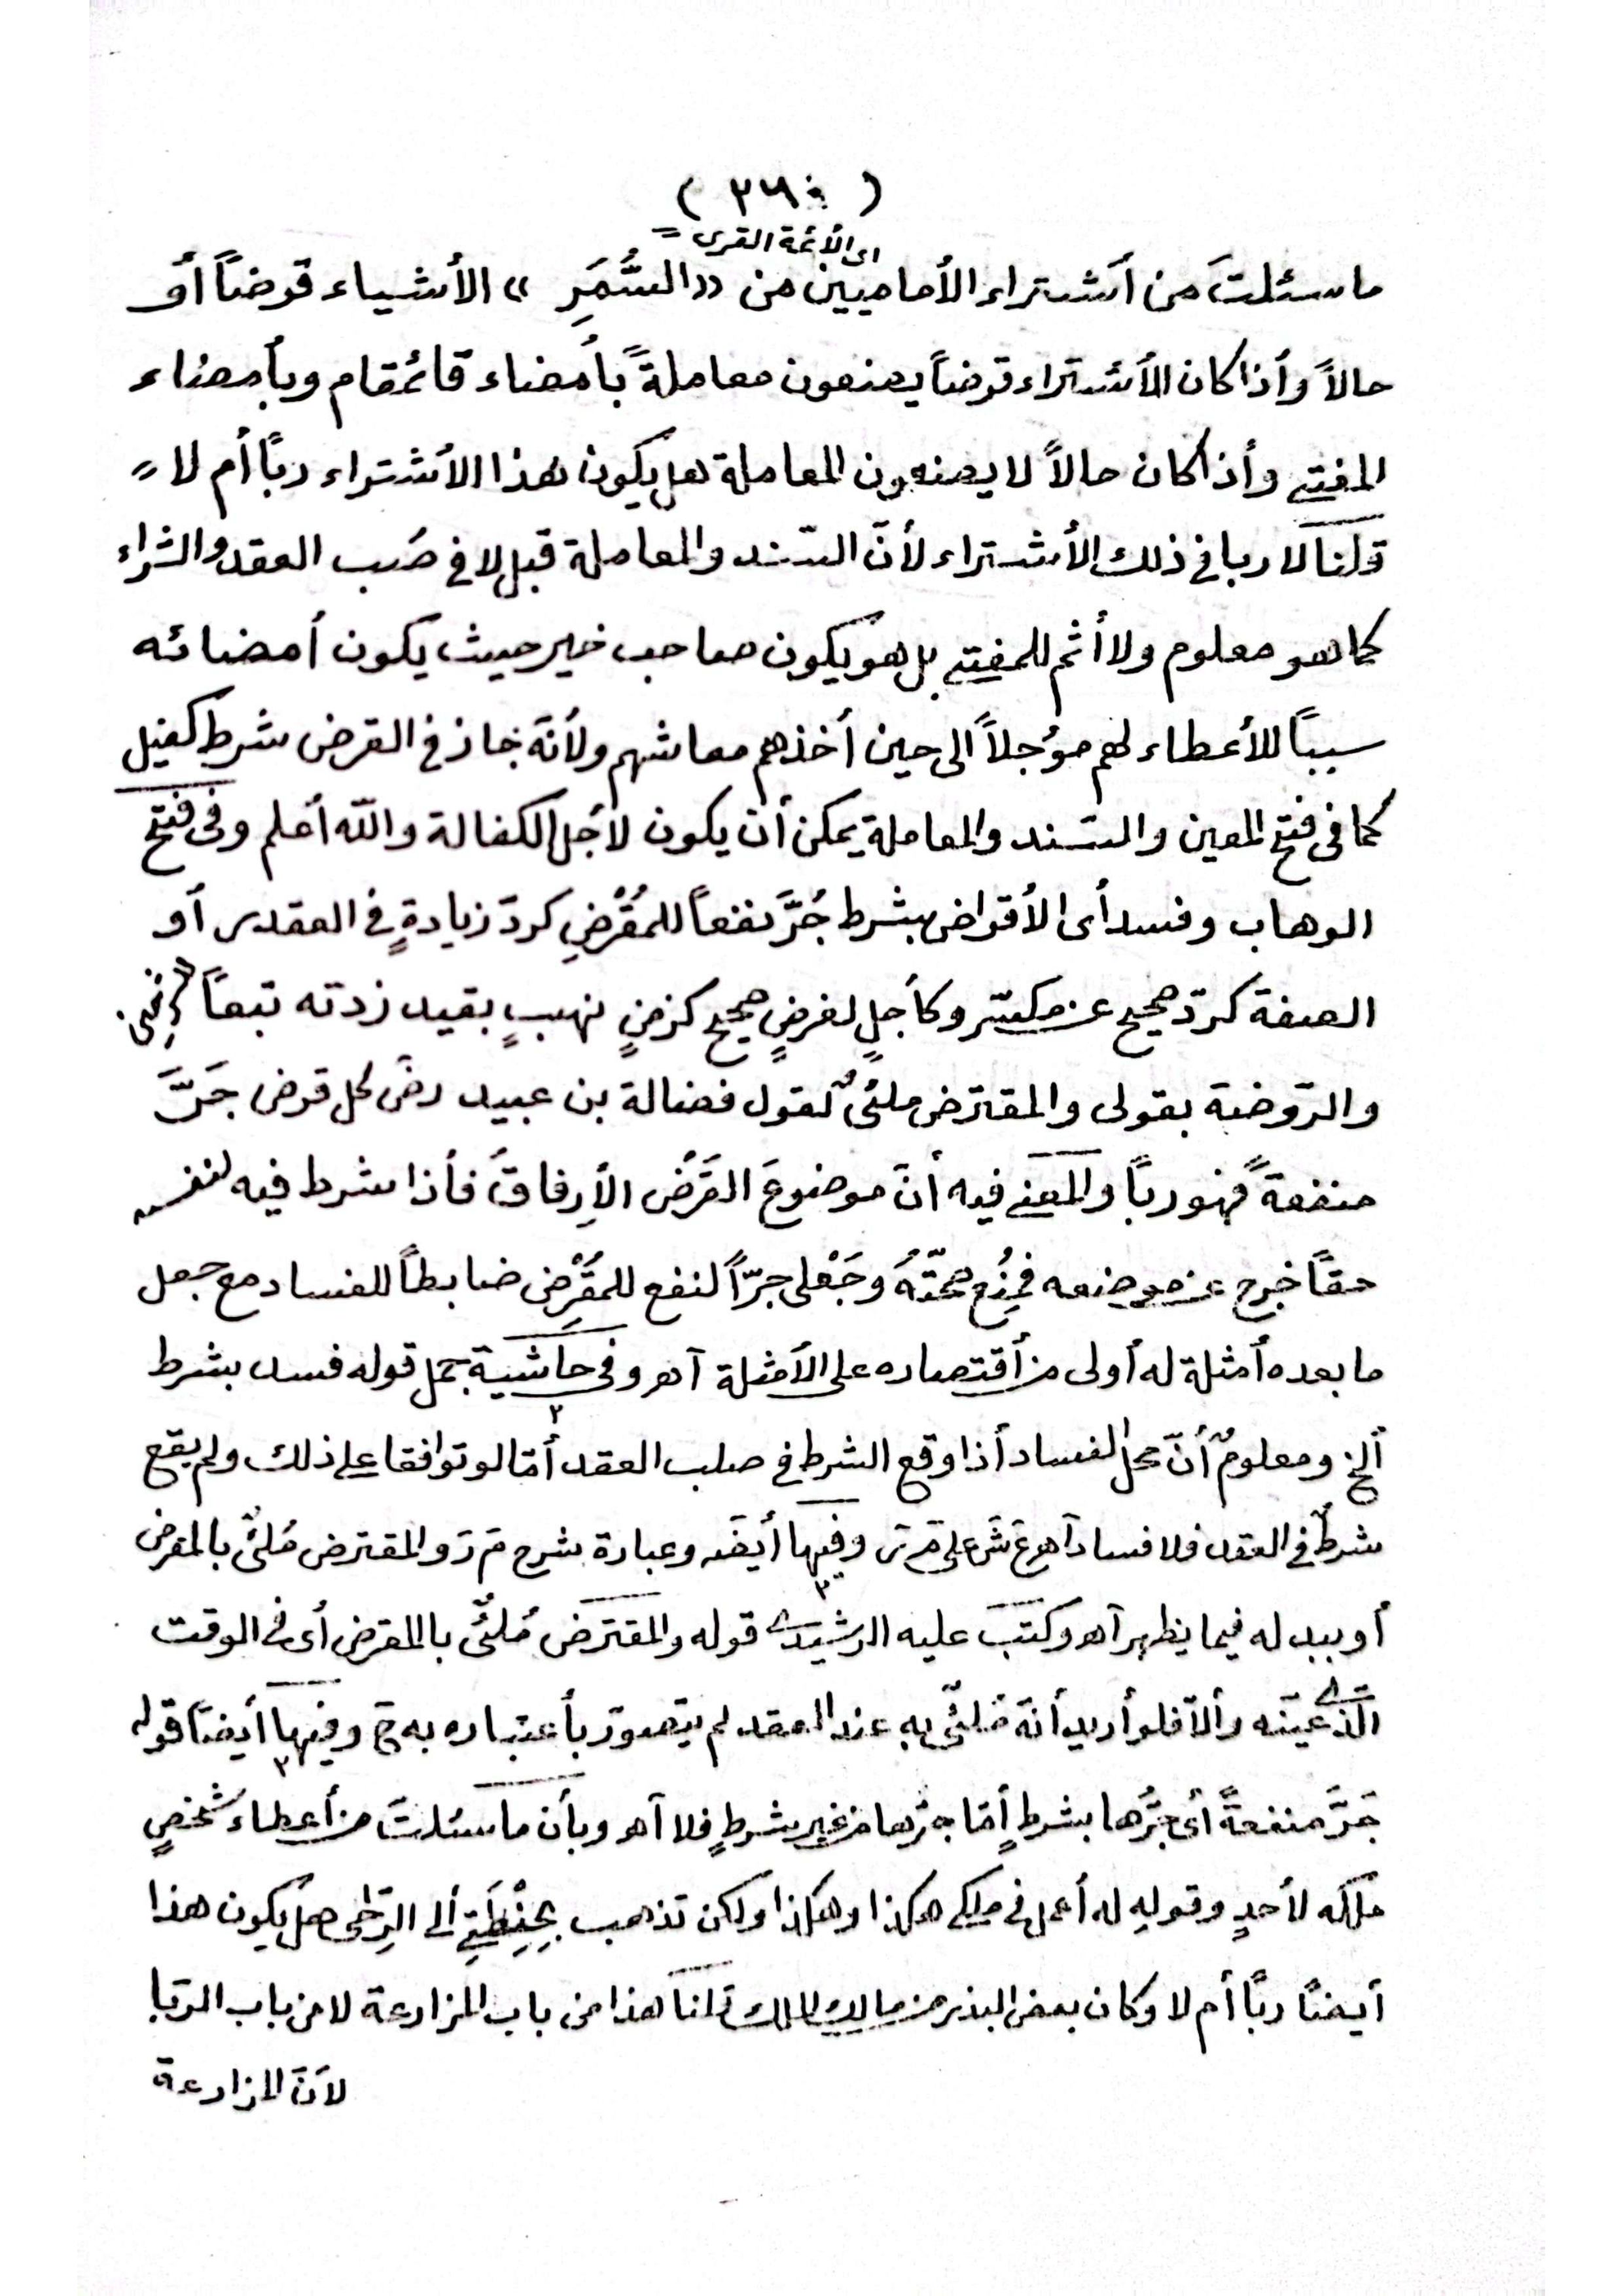 ( ٢٦٠ )
اى الأئمة القرى
ما سئلتَ من أشتراء الأماميين من «السُّمَرِ» الأشياء قرضاً أو
حالاً وأذا كان الأشتراء قرضاً يصنعون معاملةً بأمضاء قائمقام وبأمضاء
المفتى وأذا كان حالاً لا يصنعون المعاملة هل يكون هذا الأشتراء رباً أم لا
قلنا لا ربا فى ذلك الأشتراء لأنّ السّند والمعاملة قبل لا فى صُلب العقد والشراء
كما هو معلوم ولا أثم للمفتى بل هو يكون صاحب خير حيث يكون أمضائه
سبباً للأعطاء لهم موُجلاً الى حين أخذهم معاشهم ولأنّه جاز فى القرض شرط كفيل
كما فى فتح المعين والسّند والمعاملة يمكن أن يكون لأجل الكفالة والله أعلم وفى فتح
الوهاب وفسد أى الأقراض بشرط جُرَّ نفعاً للمُقْرِضِ كردّ زيادةٍ فى العقدر أو
الصفة كردّ صحيح عن مكسّر وكأجلٍ لغرضٍ صحيح كزمنٍ نهبٍ بقيد زدته تبعاً
والرّوضة بقولى والمقترض ملئٌ لقول فضالة بن عبيد رضَ كل قرض جَرَّ
منفعةً فهو رباً والمعنى فيه أنّ موضوعَ القَرَضِ الأِرفاقَ فأذا شرط فيه لنفسه
حقاً خرج عن موضعه فمِنُع صحّتَهُ وجَعْلى جرّاً لنفع للمُقْرِضِ ضابطاً للفساد مع جعل
ما بعده أمثلة له أولى من أقتصاره على الأمثلة آهـ وفى حاشية جمل قوله فسد بشرط
ألخ ومعلومٌ أنّ محل الفساد أذا وقع الشرط فى صلب العقد أمّا لو توافقا على ذلك ولم يقع
شرطٌ فى العقد فلا فساد آهـ ع ش على م ر وفيها أيضَه وعبارة شرح م ر والمقترض مُلئٌ بالمقرض
أو ببدله فيما يظهر آهـ وكتبَ عليه الرشيدى قوله والمقترض مُلئٌ باالمقرض أى فى الوقت
الّذى عيّنه وألاّ فلو أريد أنّه مُلئٌ به عند العقد لم يتصوّر بأعتباره به ح وفيها أيضاً قوله
جَرَّ منفعةً أى جَرُّها بشرطٍ أمّا جرّها من غير شرطٍ فلا آهـ وبأن ما سئلتَ من أعطاء شخصٍ
ملكَه لأحدٍ وقولِهِ له أعمل فى ملكى هكذا وهكذا ولكن تذهب بِحِنْطَتِى ألى الرّحى هل يكون هذا
أيضاً رباً أم لا وكان بعض البذر من مالك الملك قلنا هذا من باب المزارعة لا من باب الرّبا
لأنّ المزارعة